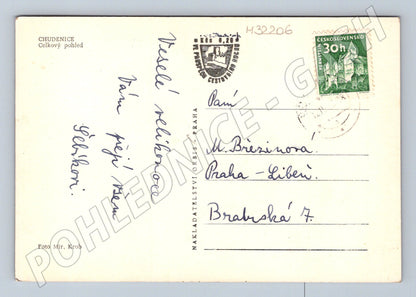 CHUDENICE
Celkový pohled
M32206
Kčs 0,20
ČESKOSLOVENSKO
30h
Veselé velikonoce
Vám přejí všem
Paní
M. Březinová
Praha - Libeň
Bratrská 7.
NAKLADATELSTVÍ ORBIS - PRAHA
Foto Mir. Krob
POHLEDNICE -